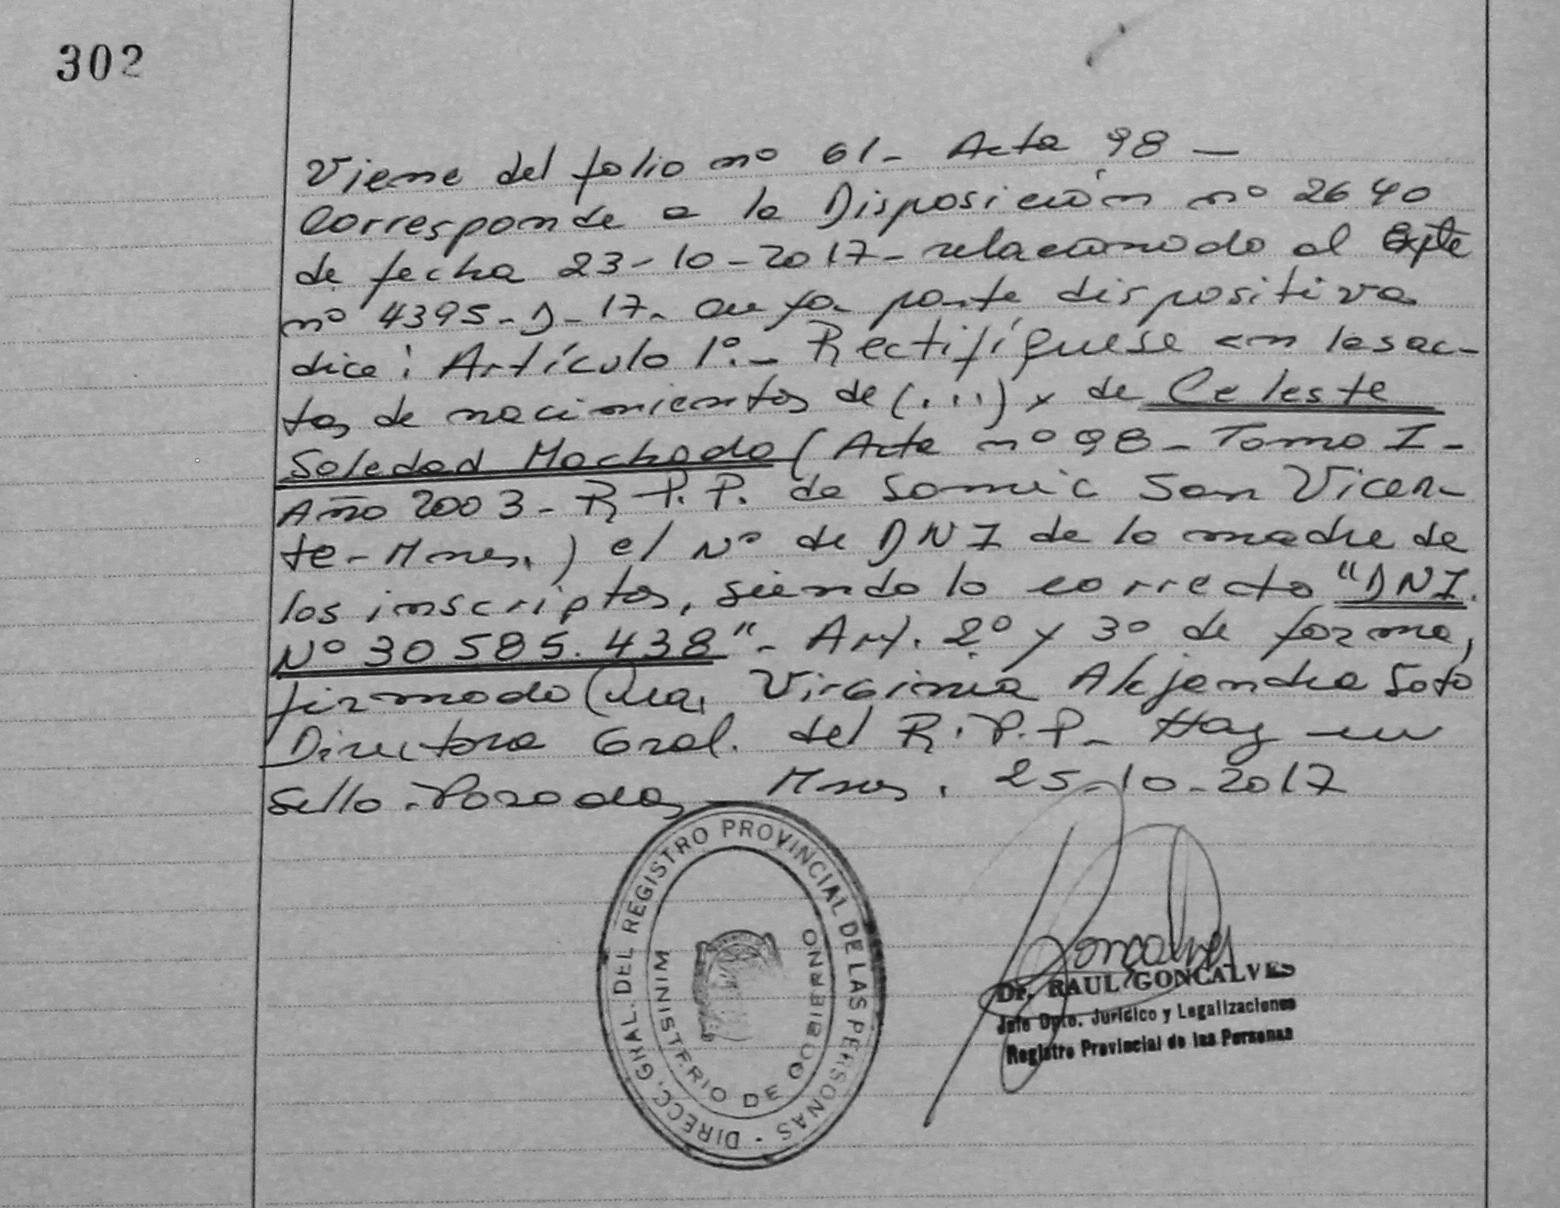 302
Viene del folio nº 61- Acta 98 -
Corresponde a la Disposición nº 2640
de fecha 23-10-2017- relacionado al Expte
nº 4395-D-17- cuya parte dispositiva
dice: Artículo 1º.- Rectifíquese en las ac-
tas de nacimientos de (...) y de Celeste
Soledad Machado (Acta nº 98- Tomo I-
Año 2003- R.P.P. de Somic San Vicen-
te- Mnes.) el Nº de DNI de la madre de
los inscriptos, siendo lo correcto "DNI.
Nº 30 585.438"- Art. 2º y 3º de forma,
firmado Virginia Alejandra Soto
Directora Gral. del R.P.P- Hay un
Sello.-Posadas, Mnes. 25-10-2017
DIRECC. GRAL. DEL REGISTRO PROVINCIAL DE LAS PERSONAS -
MINISTERIO DE GOBIERNO
Goncalves
Dr. RAUL GONCALVES
Jefe Dpto. Jurídico y Legalizaciones
Registro Provincial de las Personas